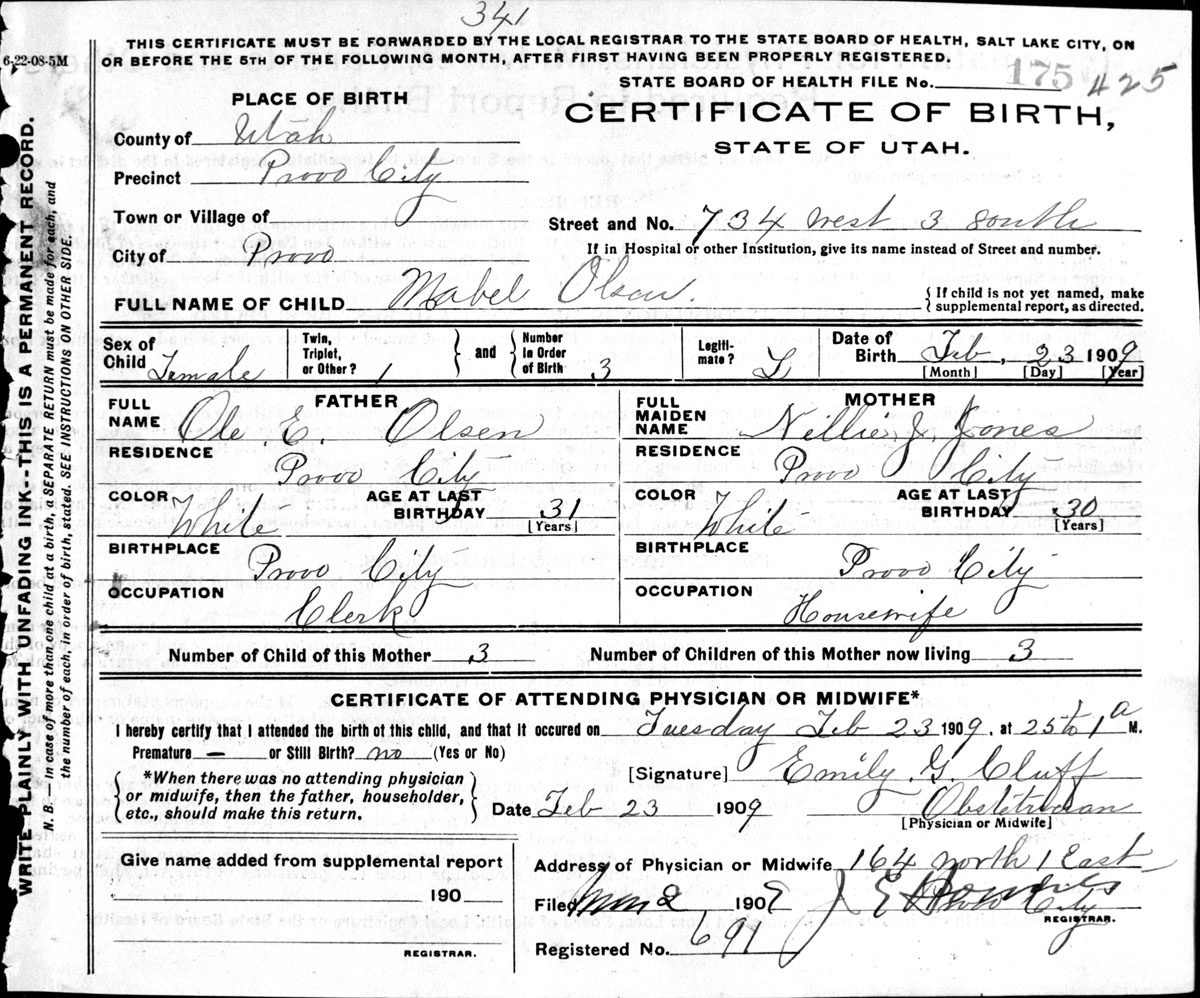 341
6-22-08-5M
THIS CERTIFICATE MUST BE FORWARDED BY THE LOCAL REGISTRAR TO THE STATE BOARD OF HEALTH, SALT LAKE CITY, ON
OR BEFORE THE 5TH OF THE FOLLOWING MONTH, AFTER FIRST HAVING BEEN PROPERLY REGISTERED.
STATE BOARD OF HEALTH FILE No. 175 425
PLACE OF BIRTH
CERTIFICATE OF BIRTH,
STATE OF UTAH.
County of Utah
Precinct Provo City
Town or Village of
Street and No. 734 west 3 south
If in Hospital or other Institution, give its name instead of Street and number.
City of Provo
FULL NAME OF CHILD Mabel Olsen.
{ If child is not yet named, make
supplemental report, as directed.
Sex of Child Female
Twin, Triplet, or Other? 1 } and { Number In Order of Birth 3
Legiti-mate? L
Date of Birth Feb, 23 1909
[Month] [Day] [Year]
FATHER
FULL NAME Ole. E. Olsen
RESIDENCE Provo City
COLOR White AGE AT LAST BIRTHDAY 31
[Years]
BIRTHPLACE Provo City
OCCUPATION Clerk
MOTHER
FULL MAIDEN NAME Nellie J. Jones
RESIDENCE Provo City
COLOR White AGE AT LAST BIRTHDAY 30
[Years]
BIRTHPLACE Provo City
OCCUPATION Housewife
Number of Child of this Mother 3 Number of Children of this Mother now living 3
CERTIFICATE OF ATTENDING PHYSICIAN OR MIDWIFE*
I hereby certify that I attended the birth of this child, and that it occured on Tuesday Feb 23 1909, at 25 to 1 a M.
Premature — or Still Birth? no (Yes or No)
{ *When there was no attending physician
or midwife, then the father, householder,
etc., should make this return. }
[Signature] Emily G. Cluff
Date Feb 23 1909 Obstetrician
[Physician or Midwife]
Give name added from supplemental report
190
REGISTRAR.
Address of Physician or Midwife 164 north 1 East
City
Filed Mar 2 1909 J E
REGISTRAR.
Registered No. 691
WRITE PLAINLY WITH UNFADING INK--THIS IS A PERMANENT RECORD.
N. B. — In case of more than one child at a birth, a SEPARATE RETURN must be made for each, and
the number of each, in order of birth, stated. SEE INSTRUCTIONS ON OTHER SIDE.